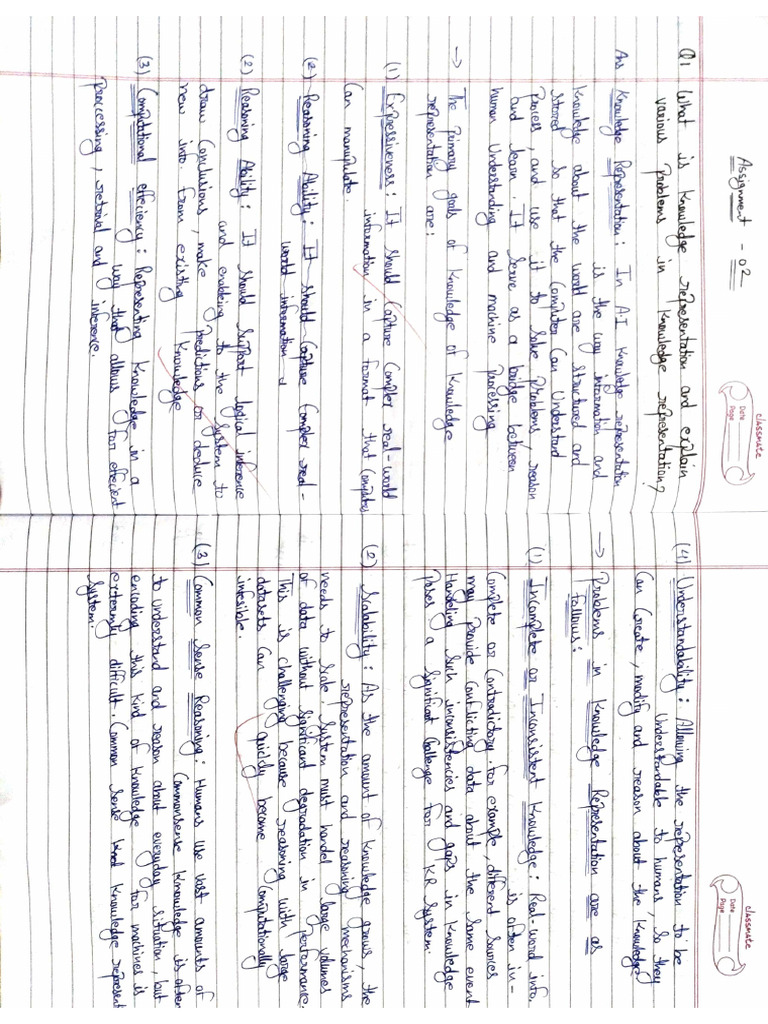 Assignment - 02
classmate
Date
Page
Q1 What is Knowledge representation and explain
various Problems in Knowledge representation?
Ans Knowledge Representation: In A.I Knowledge representation
is the way information and
Knowledge about the world are structured and
stored so that the Computer Can Understand
Process, and use it to solve Problems, reason
and learn. It Serve as a bridge between
human Understanding and machine processing
→ The Primary goals of Knowledge of Knowledge
representation are:
(1) Expressiveness: It should Capture Complex real-world
information in a format that Computers
Can manipulate.
(2) Reasoning Ability: It should Capture Complex real-
world information &
(2) Reasoning Ability: It should Support logical inference
and enabling to the System to
draw Conclusions, make predictions or deduce
new info. from existing Knowledge
(3) Computational efficiency: Representing Knowledge in a
way that allows for efficient
processing, retrival and inference.
classmate
Date
Page
(4) Understandability: Allowing the representation to be
Understandable to humans, So they
Can Create, modify and reason about the Knowledge
→ Problems in Knowledge Representation are as
follows:
(1) Incomplete or Inconsistent Knowledge: Real-word info.
is often in-
Complete or Contradictory. for example, different Sources
may Provide Conflicting data about the Same event
Handeling Such inconsistencies and gaps in Knowledge
Poses a Significant Challenge for KR System.
(2) Scalability: As the amount of Knowledge grows, the
representation and reasoning mechanisms
needs to Scale System must handel large volumes
of data without Significant degradation in Performance.
This is challenging because reasoning with large
datasets Can quickly become Computationally
infesible.
(3) Common Sense Reasoning: Humans Use vast amounts of
Commonsense Knowledge is often
to Understand and reason about everyday Situation, but
encoding this Kind of Knowledge for machines is
extermly difficult. Common Sense Knol Knowledge represent
System.